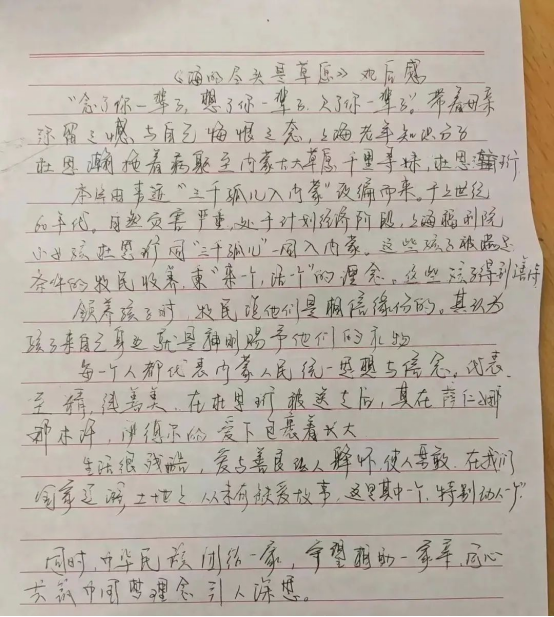 《海的尽头是草原》观后感
“念了你一辈子,想了你一辈子,欠了你一辈子”带着母亲
深留之憾与自己悔恨之念,上海老年知识分子
杜思瀚拖着病躯至内蒙古大草原,千里寻妹,杜思珩
本片由事迹“三千孤儿入内蒙”改编而来。十上世纪
60年代。自然灾害严重,处于计划经济阶段,上海福利院
小女孩杜思珩同“三千孤儿”一同入内蒙。这些孩子被满足
条件的牧民收养,秉“来一个,活一个”的理念。这些孩子得到善待
领养孩子时,牧民说他们是佩信缘份的。其认为
孩子来自己身边就是神明赐予他们的礼物
每一个人都代表内蒙人民统一思想与信念。代表
至情,纯善美。在杜思珩被送走后,其在萨仁娜
那木汗,伊德尔的爱下包裹着长大
生活很残酷,爱与善良给人释怀,使人勇敢。在我们
国家这片土地上从未有缺爱故事,这是其中一个,特别动人一个。
同时,中华民族团结一家,守望相助一家亲,同心
共筑中国梦理念引人深思。